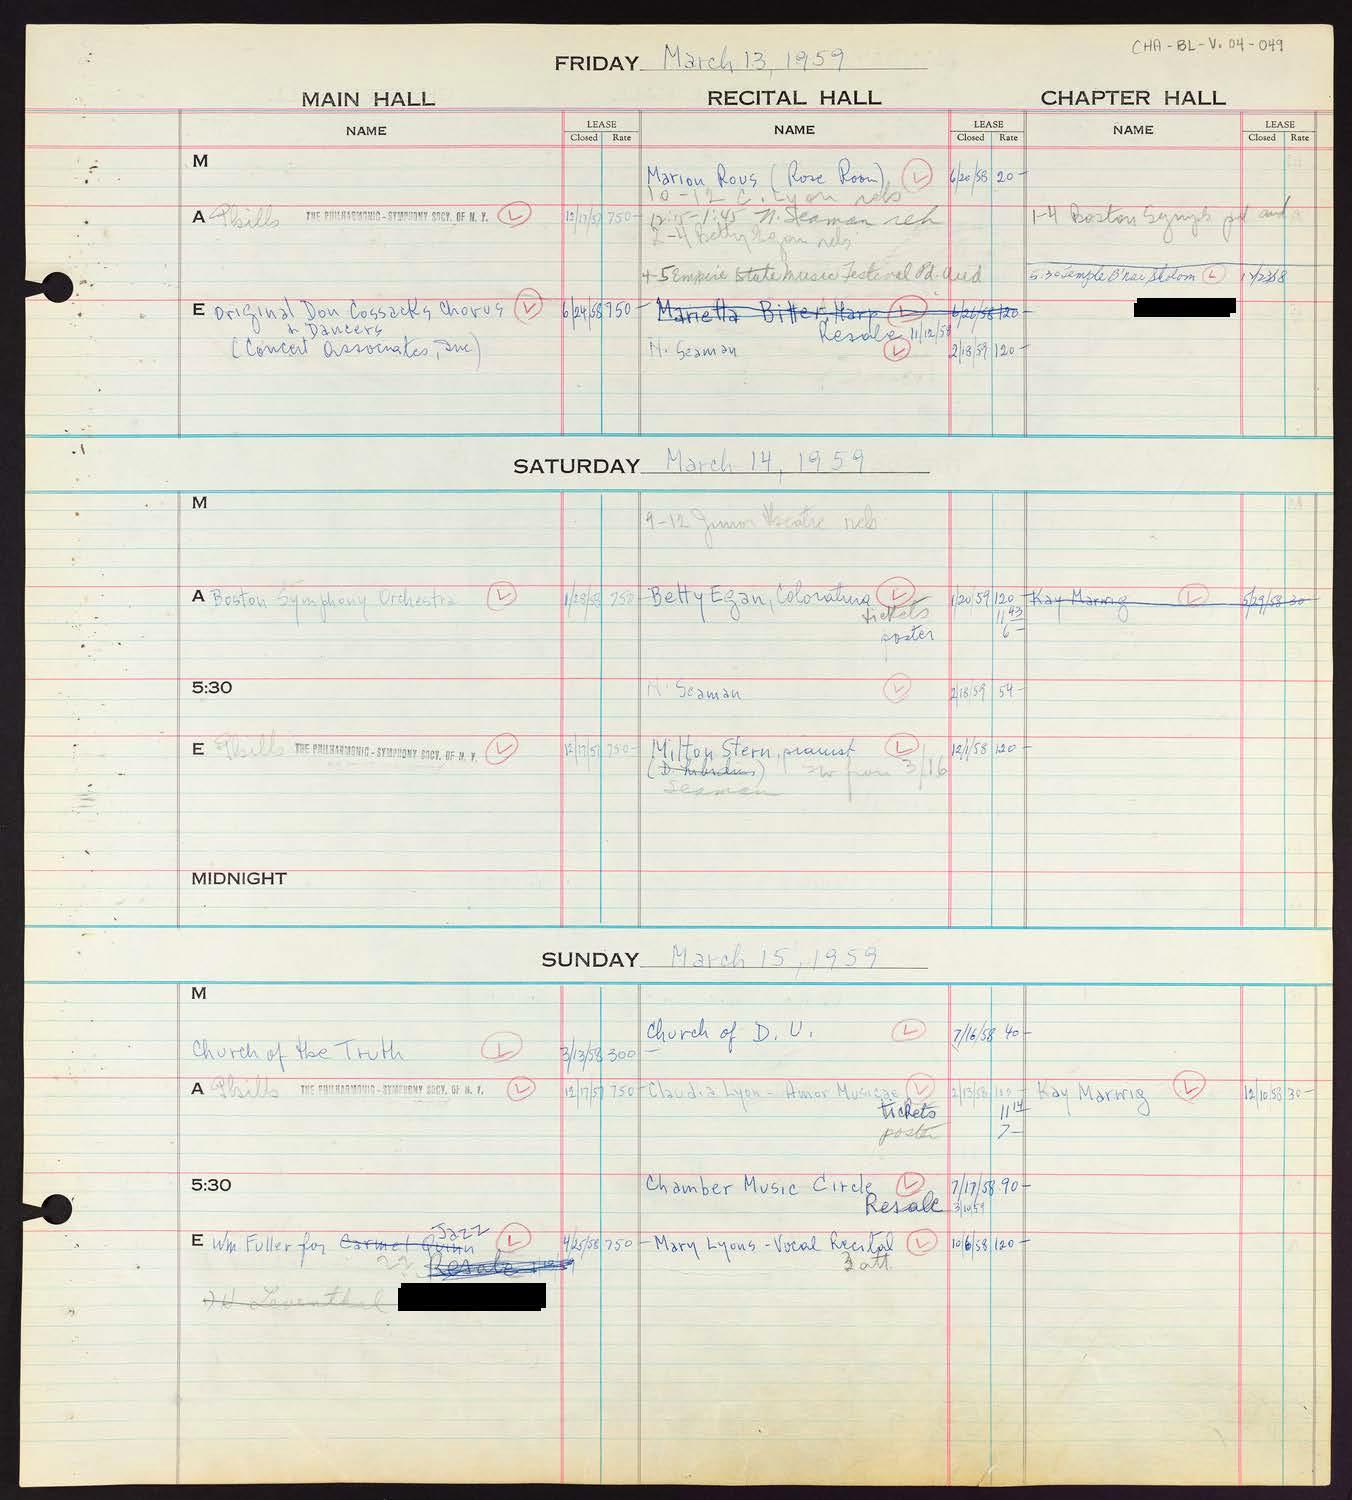 CHA-BL-V.04-049
FRIDAY March 13, 1959
MAIN HALL RECITAL HALL CHAPTER HALL
NAME LEASE Closed Rate NAME LEASE Closed Rate NAME LEASE Closed Rate
M
Marion Rous (Rose Room) L 6/20/58 20-
10-12 C. Lyon reh
A Phills THE PHILHARMONIC-SYMPHONY SOCY. OF N. Y. L 12/17/57 750- 12:15-1:45 N. Seaman reh 1-4 Boston Symph pd aud
2-4 Betty Egan reh
4-5 Empire State Music Festival Pd. aud 5:30 Temple B'nai Sholom L
E Original Don Cossacks Chorus L 6/24/58 750- Marietta Bitter, Harp L 6/26/58 120-
& Dancers Resale 11/12/58
(Concert Associates, Inc) N. Seaman L 2/18/59 120-
SATURDAY March 14, 1959
M
9-12 Junior Theatre reh
A Boston Symphony Orchestra L 1/28/58 750- Betty Egan, Coloratura L 1/20/59 120- Kay Marwig L 5/29/58 30-
tickets 11 43
poster 6-
5:30 N. Seaman L 2/18/59 54-
E Phills THE PHILHARMONIC-SYMPHONY SOCY. OF N. Y. L 12/17/57 750- Milton Stern, pianist L 12/1/58 120-
from 3/16
Seaman
MIDNIGHT
SUNDAY March 15, 1959
M
Church of D. U. L 7/16/58 40-
Church of the Truth L 3/13/58 300-
A Phills THE PHILHARMONIC-SYMPHONY SOCY. OF N. Y. L 12/17/57 750- Claudia Lyon - Amor Musicae L 2/13/58 Kay Marwig L 12/10/58 30-
tickets 11 14
poster 7-
5:30 Chamber Music Circle L 7/17/58 90-
Resale 3/10/59
Jazz
E Wm Fuller for Carmel Quinn L 4/25/58 750- Mary Lyons - Vocal Recital L 10/6/58 120-
22 Resale 3 att.
Leventhal